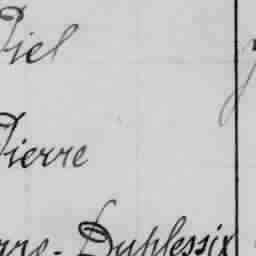 Piel
Pierre
rre-Duplessix